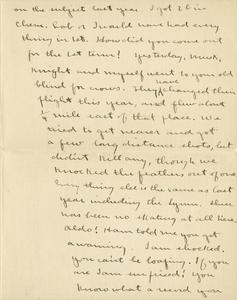 on the subject last year. I got 2 B in
them. Bob or I would have had every
thing in 1st. How did you come out
for the 1st term? Yesterday, Meek,
Knight and myself went to your old
blind for crows. They have changed their
flight this year, and flew about
1/4 mile east of that place. We
tried to get nearer and got
a few long distance shots, but
didn't kill any, though we
knocked the feathers out of one.
Every thing else is the same as last
year including the hymn. There
has been no skating at all here.
Aldo! Ham told me you got
a warning. I am shocked.
You can't be loafing. If you
are I am surprised! You
know what a record you